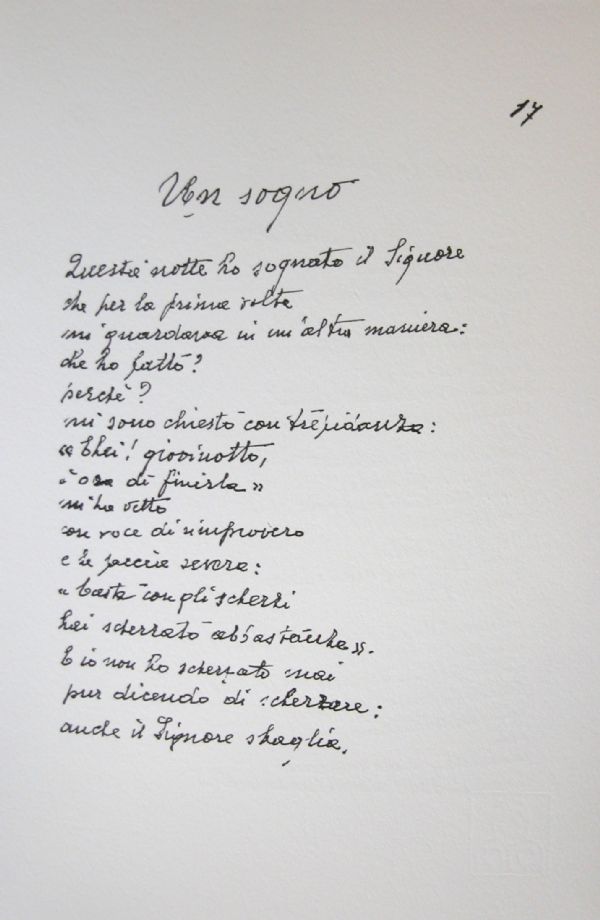 17
Un sogno
Questa notte ho sognato il Signore
che per la prima volta
mi guardava in un'altra maniera:
che ho fatto?
perchè?
mi sono chiesto con trepidanza:
« Ehi! giovinotto,
è ora di finirla »
mi ha detto
con voce di rimprovero
e la faccia severa:
« basta con gli scherzi
hai scherzato abbastanza ».
E io non ho scherzato mai
pur dicendo di scherzare:
anche il Signore sbaglia.